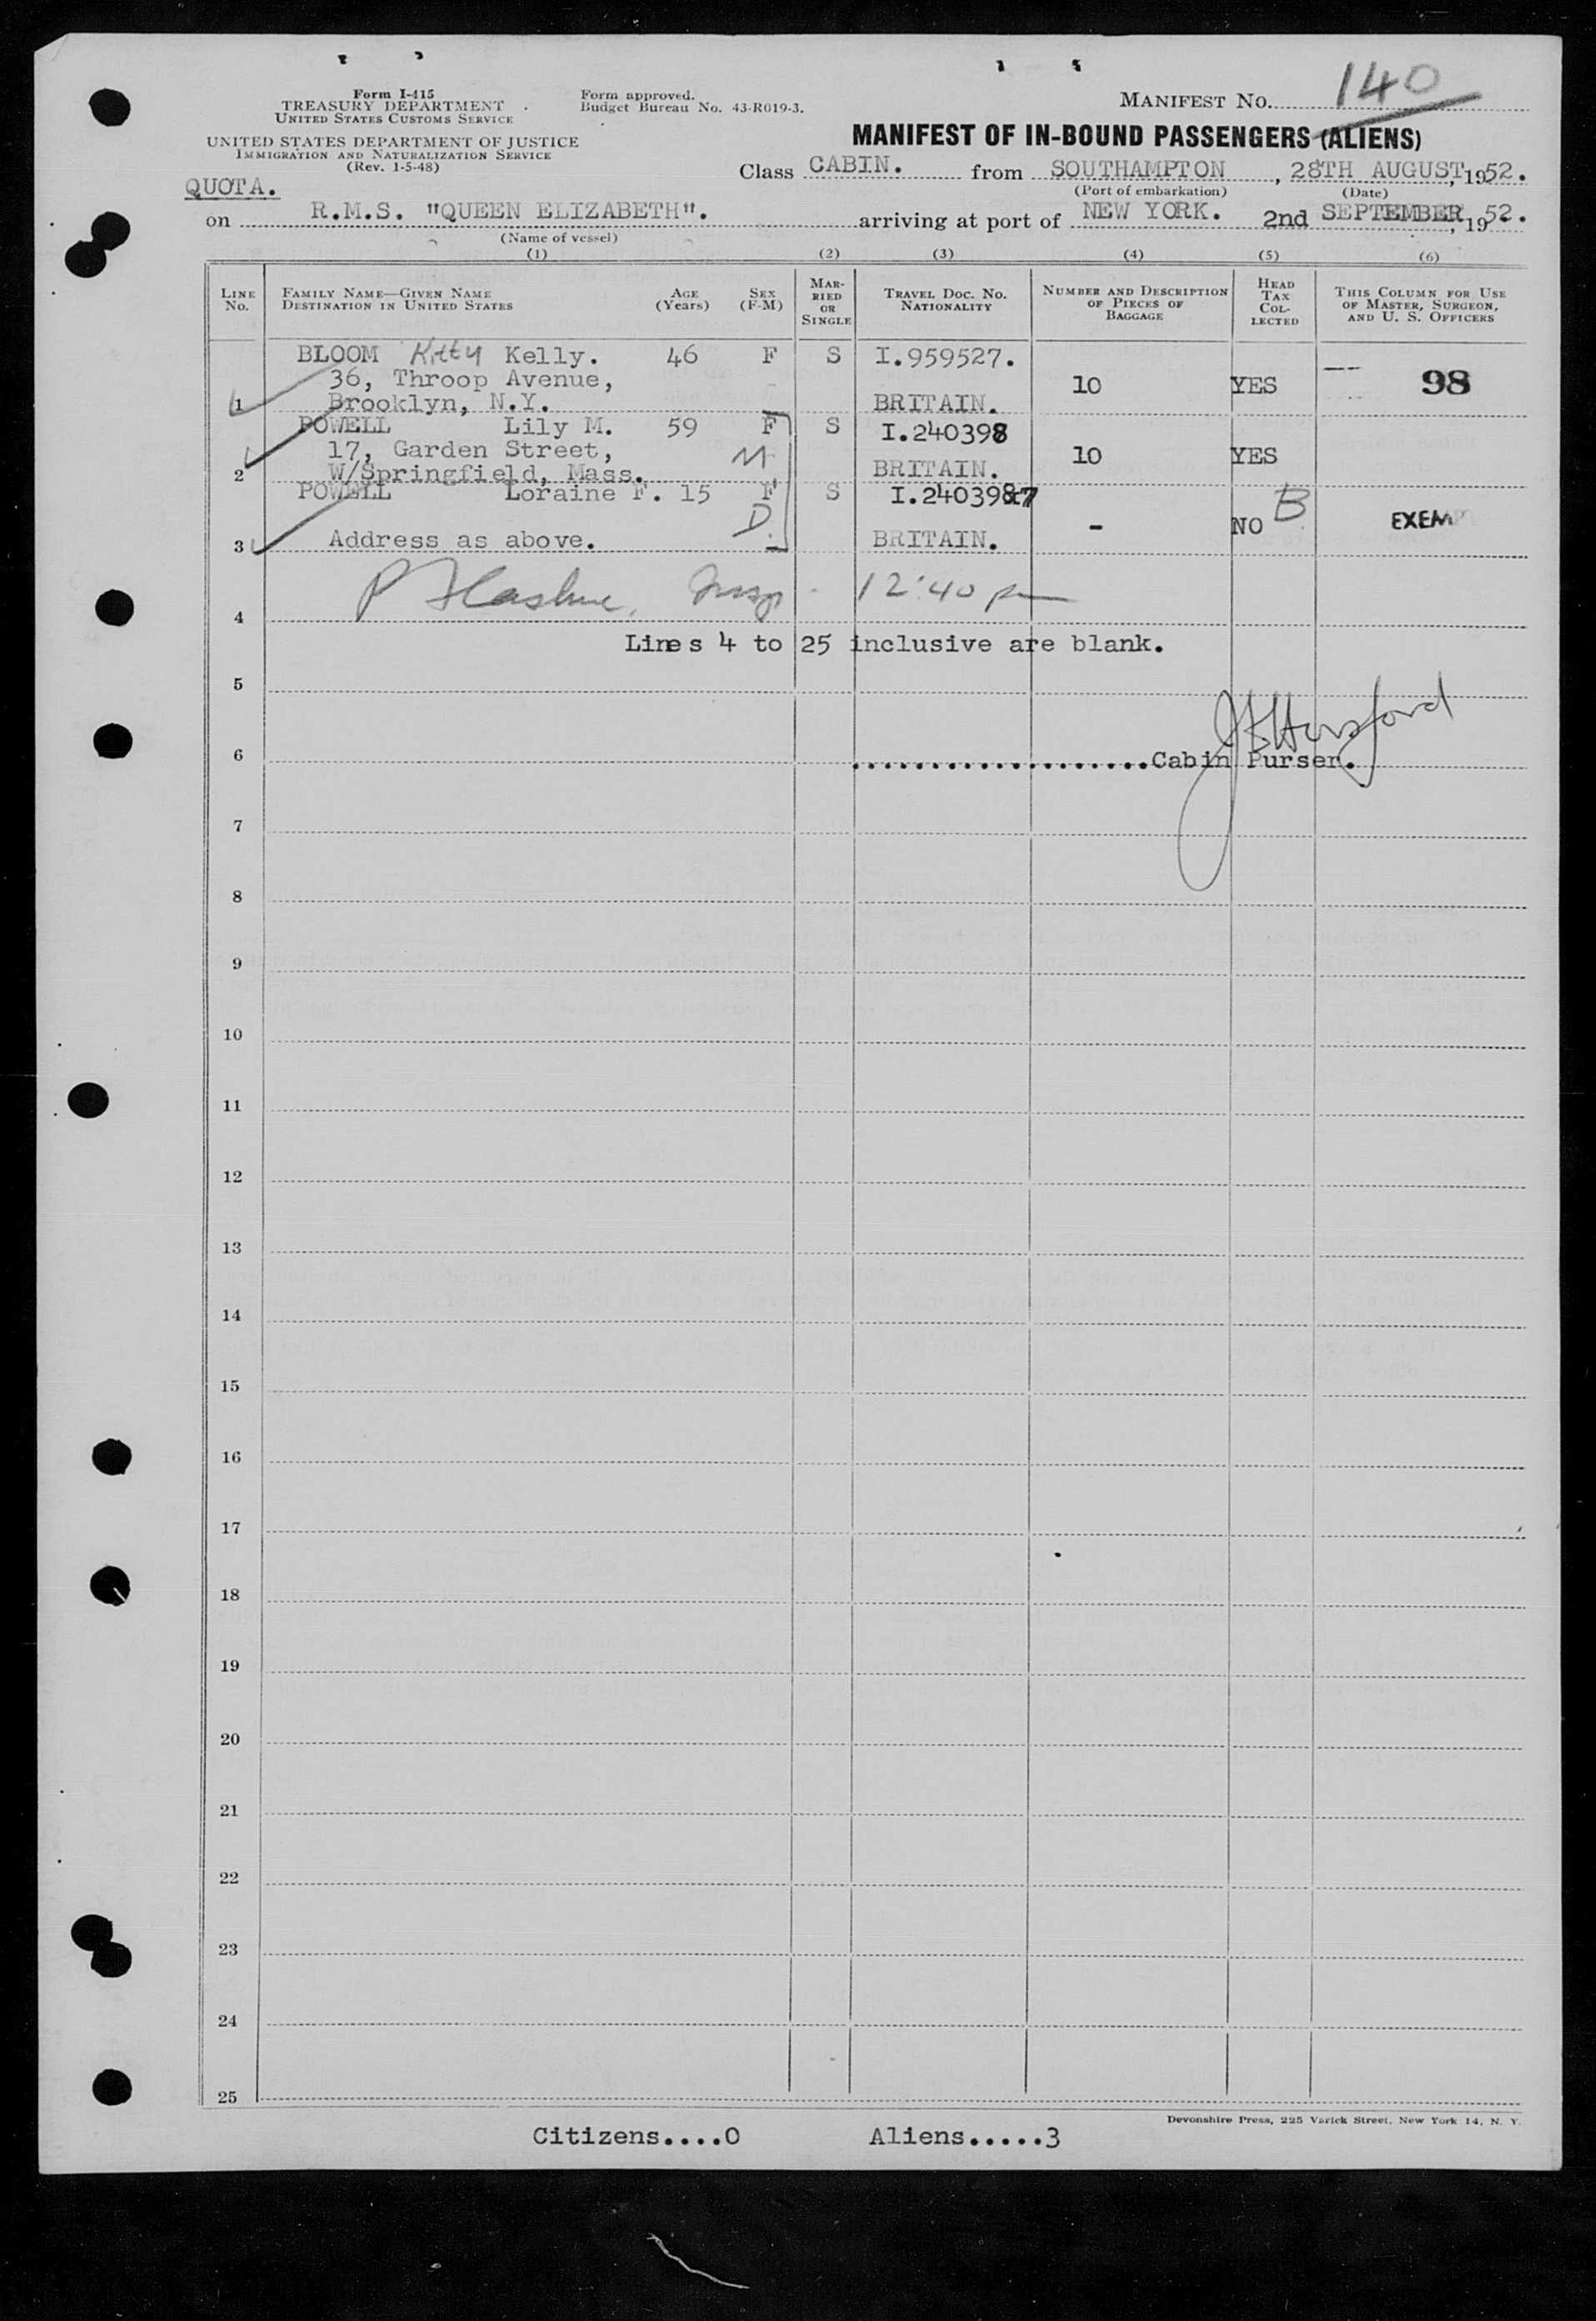 Form I-415
TREASURY DEPARTMENT
UNITED STATES CUSTOMS SERVICE
Form approved.
Budget Bureau No. 43-R019-3.
MANIFEST NO. 140
UNITED STATES DEPARTMENT OF JUSTICE
IMMIGRATION AND NATURALIZATION SERVICE
(Rev. 1-5-48)
MANIFEST OF IN-BOUND PASSENGERS (ALIENS)
QUOTA.
Class CABIN. from SOUTHAMPTON, 28TH AUGUST, 1952.
(Port of embarkation) (Date)
on R.M.S. "QUEEN ELIZABETH". arriving at port of NEW YORK. 2nd SEPTEMBER, 1952.
(Name of vessel)
(1) (2) (3) (4) (5) (6)
LINE NO.
FAMILY NAME—GIVEN NAME
DESTINATION IN UNITED STATES
AGE (Years)
SEX (F-M)
MARRIED OR SINGLE
TRAVEL DOC. NO.
NATIONALITY
NUMBER AND DESCRIPTION OF PIECES OF BAGGAGE
HEAD TAX COLLECTED
THIS COLUMN FOR USE OF MASTER, SURGEON, AND U. S. OFFICERS
BLOOM Kitty Kelly. 46 F S I.959527.
36, Throop Avenue, 10 YES 98
1 Brooklyn, N.Y. BRITAIN.
POWELL Lily M. 59 F S I.240398
17, Garden Street, M 10 YES
2 W/Springfield, Mass. BRITAIN.
POWELL Loraine F. 15 F S I.2403987
D - NO B EXEMPT
3 Address as above. BRITAIN.
4 12:40 pm
Lines 4 to 25 inclusive are blank.
5
6 ....................Cabin Purser.
7
8
9
10
11
12
13
14
15
16
17
18
19
20
21
22
23
24
25
Devonshire Press, 225 Varick Street, New York 14, N. Y.
Citizens....0 Aliens.....3